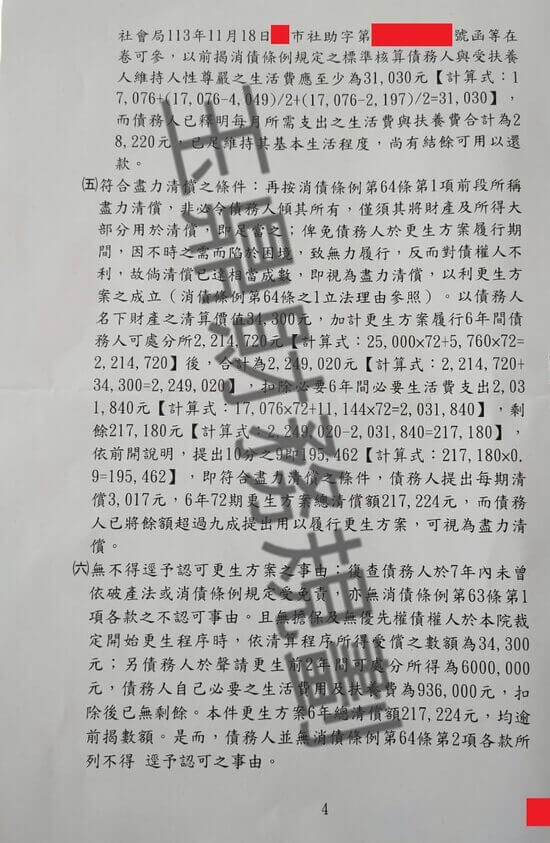 社會局113年11月18日 市社助字第 號函等在
卷可參，以前揭消債條例規定之標準核算債務人與受扶養
人維持人性尊嚴之生活費應至少為31,030元【計算式：1
7,076+(17,076-4,049)/2+(17,076-2,197)/2=31,030】，
而債務人已釋明每月所需支出之生活費與扶養費合計為2
8,220元，已足維持其基本生活程度，尚有結餘可用以還
款。
㈤符合盡力清償之條件：再按消債條例第64條第1項前段所稱
盡力清償，非必令債務人傾其所有，僅須其將財產及所得大
部分用於清償，即足當之；俾免債務人於更生方案履行期
間，因不時之需而陷於困境，致無力履行，反而對債權人不
利，故倘清償已達相當成數，即視為盡力清償，以利更生方
案之成立（消債條例第64條之1立法理由參照）。以債務人
名下財產之清算價值34,300元，加計更生方案履行6年間債
務人可處分所2,214,720元【計算式：25,000x72+5,760x72=
2,214,720】後，合計為2,249,020元【計算式：2,214,720+
34,300=2,249,020】，扣除必要6年間必要生活費支出2,03
1,840元【計算式：17,076x72+11,144x72=2,031,840】，剩
餘217,180元【計算式：2,249,020-2,031,840=217,180】，
依前開說明，提出10分之9即195,462【計算式：217,180x0.
9=195,462】，即符合盡力清償之條件，債務人提出每期清
償3,017元，6年72期更生方案總清償額217,224元，而債務
人已將餘額超過九成提出用以履行更生方案，可視為盡力清
償。
㈥無不得逕予認可更生方案之事由：復查債務人於7年內未曾
依破產法或消債條例規定受免責，亦無消債條例第63條第1
項各款之不認可事由。且無擔保及無優先權債權人於本院裁
定開始更生程序時，依清算程序所得受償之數額為34,300
元；另債務人於聲請更生前2年間可處分所得為6000,000
元，債務人自己必要之生活費用及扶養費為936,000元，扣
除後已無剩餘。本件更生方案6年總清償額217,224元，均逾
前揭數額。是而，債務人並無消債條例第64條第2項各款所
列不得 逕予認可之事由。
4
玉鼎財務規劃